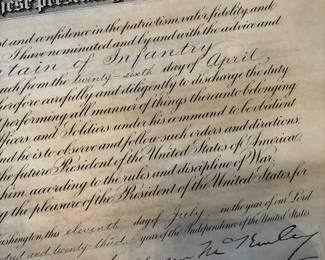 these pres
t and confidence in the patriotism, valor, fidelity, and
I have nominated, and by and with the advice and
tain of Infantry
such from the twenty-sixth day of April,
therefore carefully and diligently to discharge the duty
performing all manner of things thereunto belonging
Officers and Soldiers under his command to be obedient
And he is to observe and follow such orders and directions,
the future President of the United States of America,
him, according to the rules and discipline of War.
the pleasure of the President of the United States for
Washington, this eleventh day of July, in the year of our Lord
and twenty-third year of the Independence of the United States.
McKinley